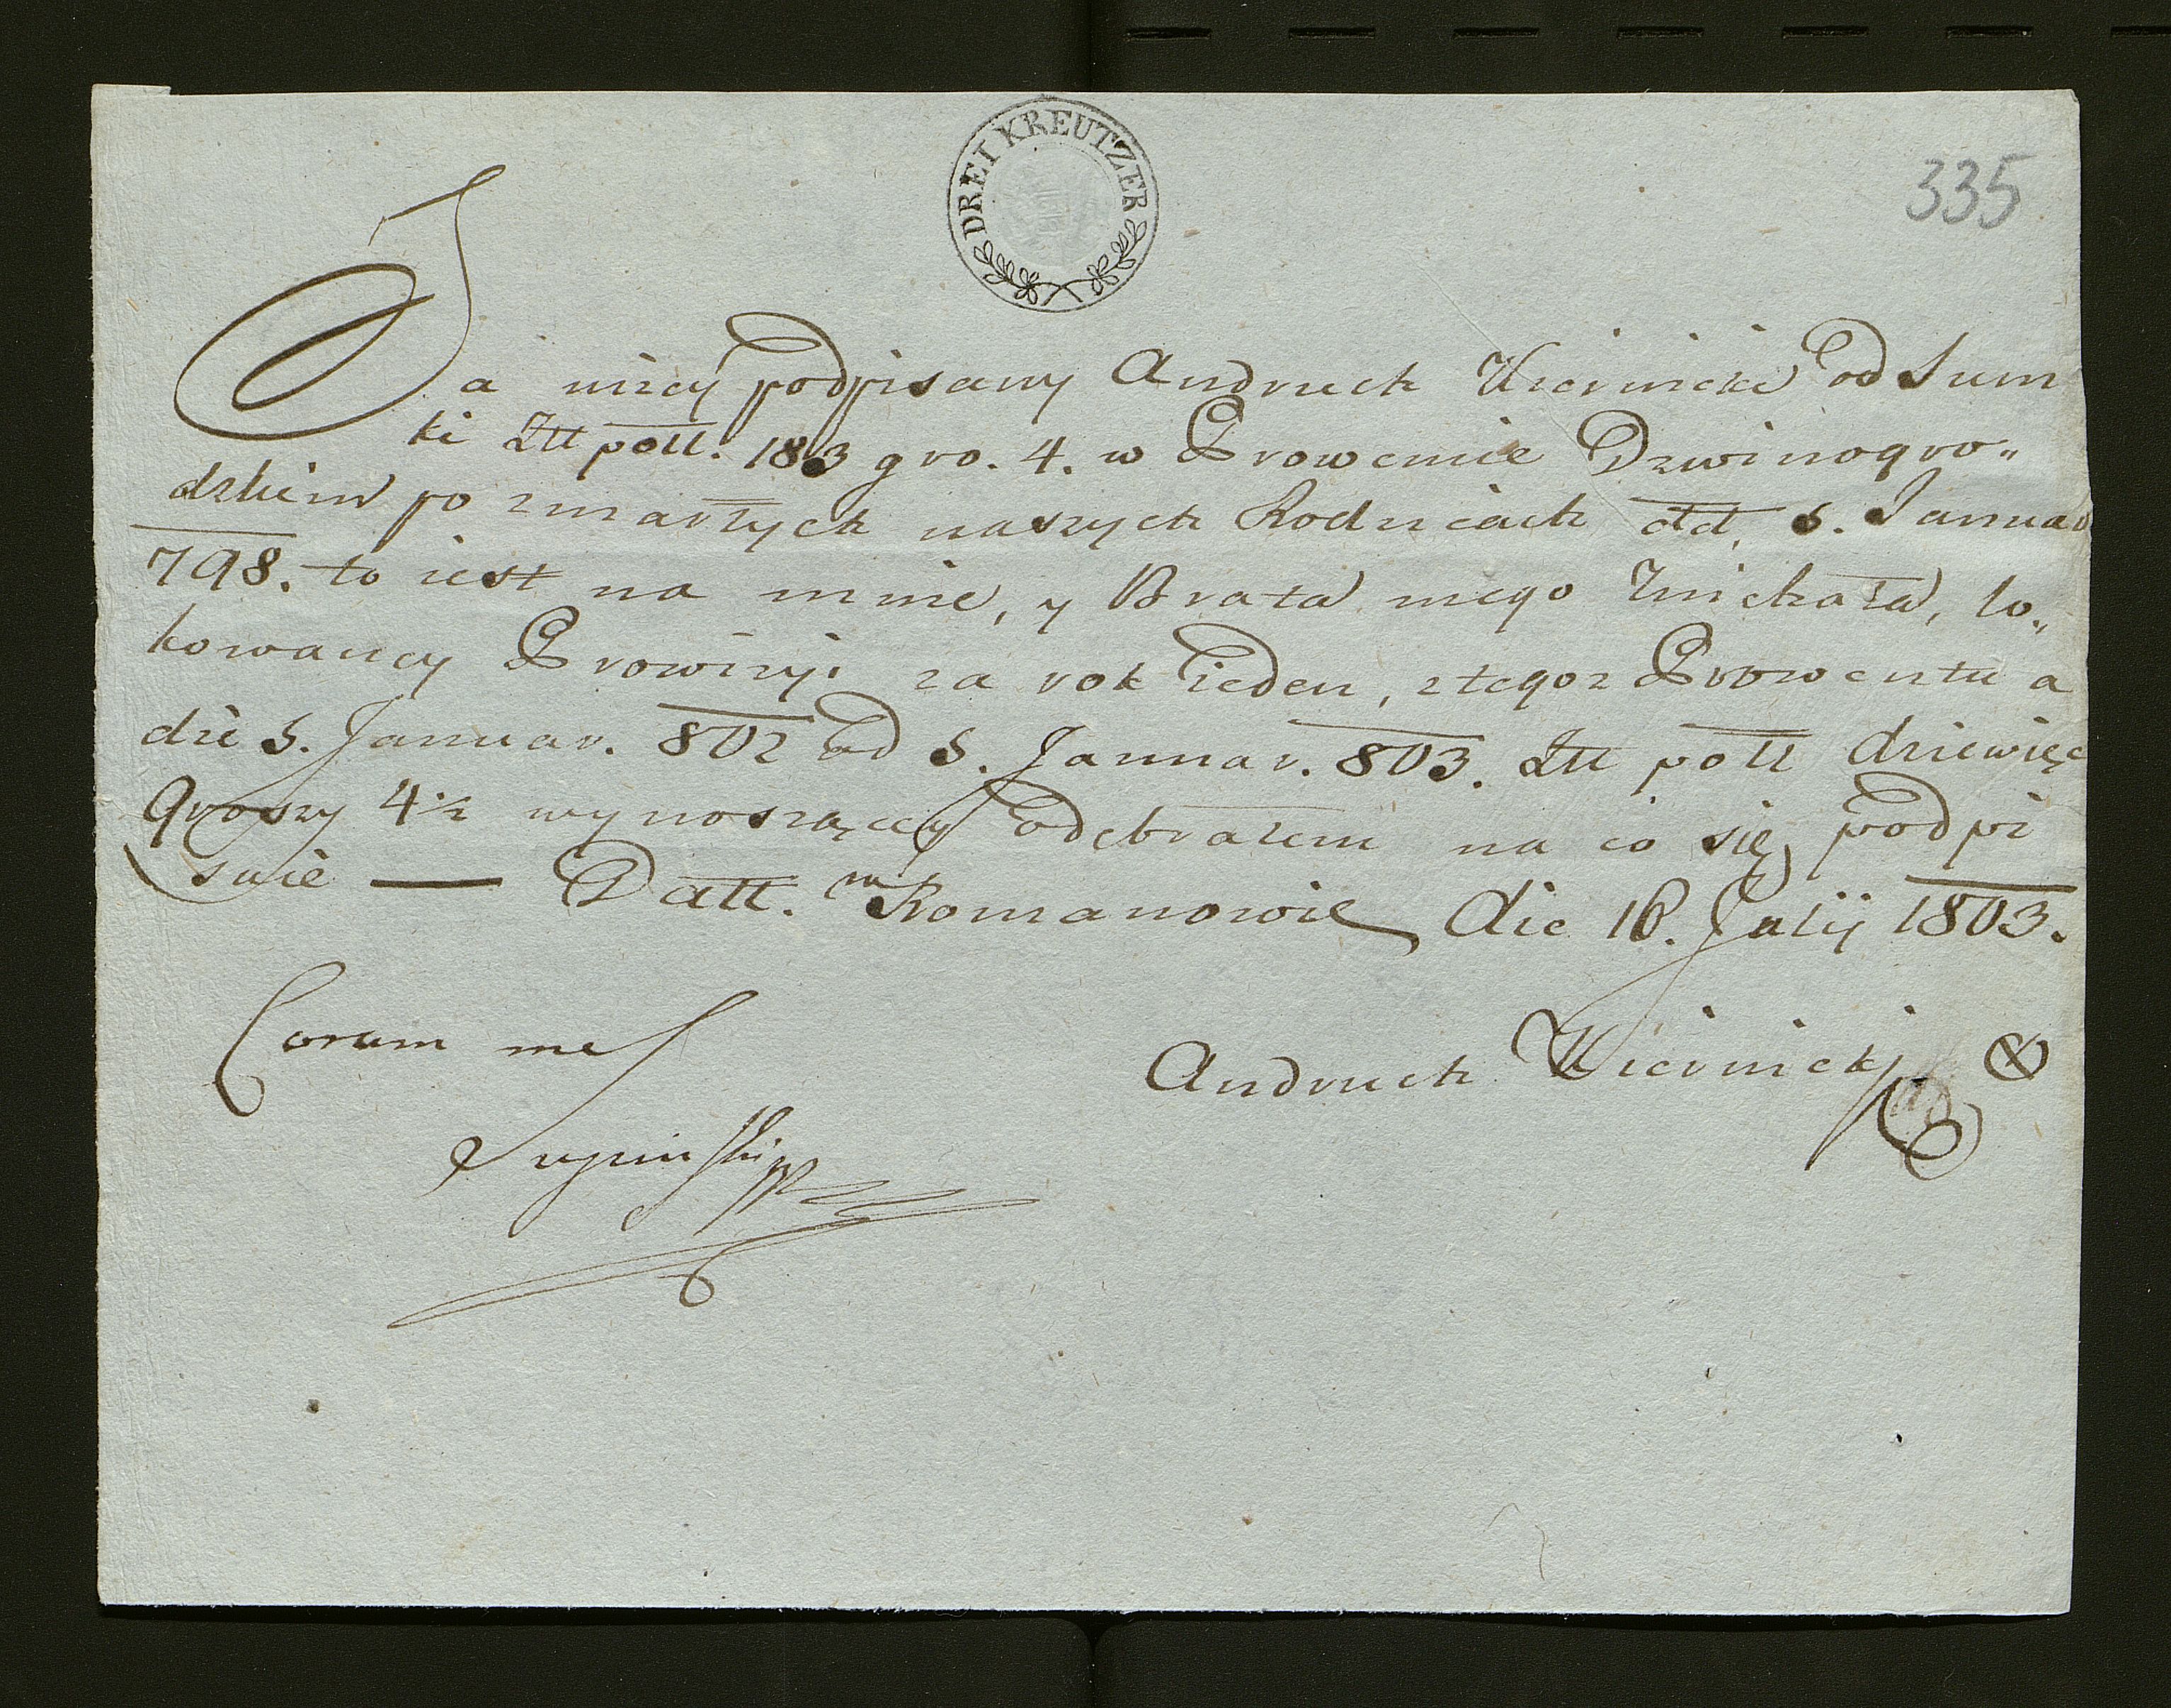 DREI KREUTZER
335
Ja nizey podpisany Andruch Kiernicki od Sum
ki Ztt pott. 183 gro. 4. w Prowencie Dzwinogro„
dzkim po zmarłych naszych Rodzicach dd. 5. Januar
798. to iest na mnie, y Brata mego Michała, lo„
kowaney Prowizyi za rok ieden, ztegoz Prowentu a
die 5. Januar. 802 ad 5. Januar. 803. Ztt pott dziewięc
groszy 4½ wynoszącey odebrałem na co się podpi
suie — Datt. m Romanowie die 16. Julij 1803.
Coram me
Andruch Kiernickj